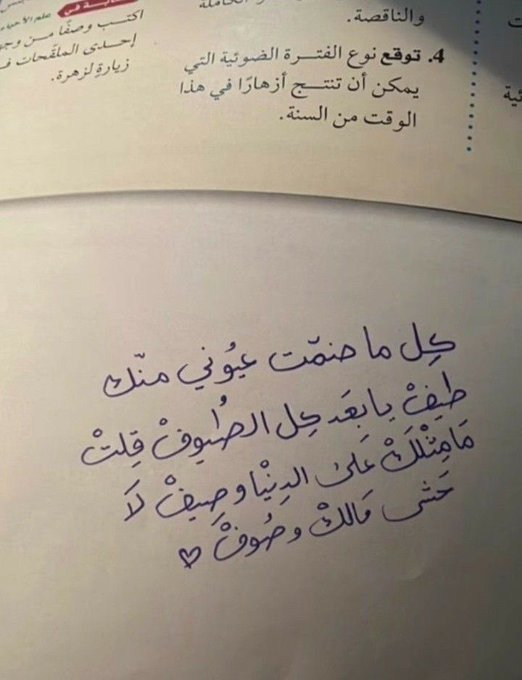 والناقصة.
4. توقع نوع الفترة الضوئية التي
يمكن أن تنتج أزهارًا في هذا
الوقت من السنة.
اكتب وصفًا من
إحدى الملقحات
زيارة لزهرة.
كِل ما ضمّت عيُوني منّك
طيفْ يا بعَد كِل الطيُوفْ قِلتْ
مَامِثْلَكْ عَلىٰ الدِنْيا وصِيفْ لَا
حَشى مَالكْ وصُوفْ ♡